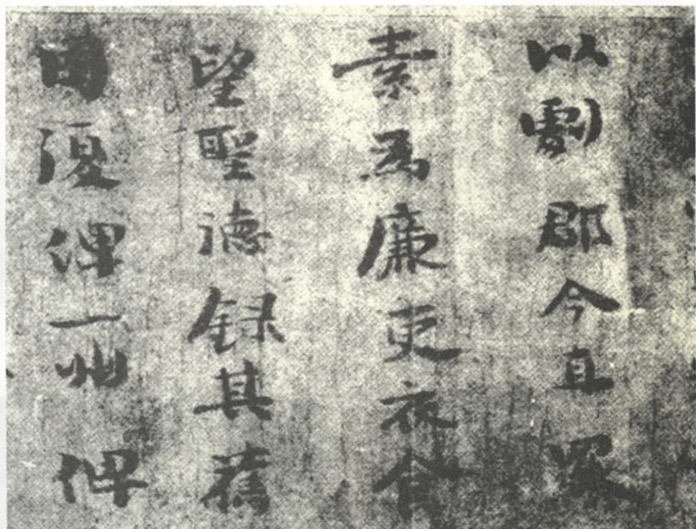 以劇郡今直罷
素為廉吏衣食
望聖德錄其舊
困復俾一州俾